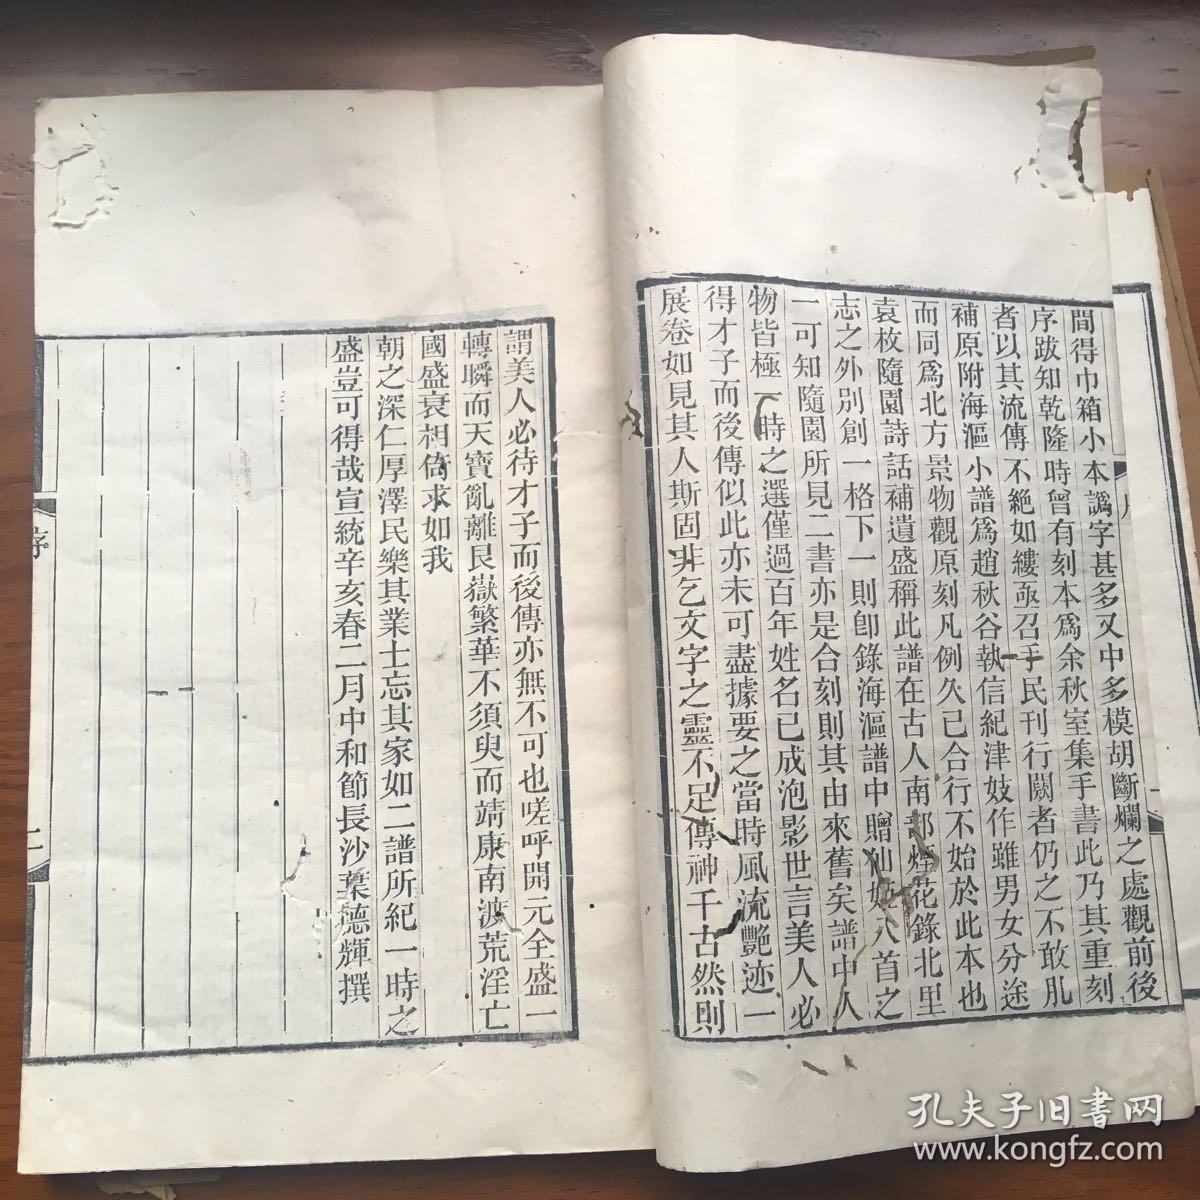 間得巾箱小本譌字甚多又中多模胡斷爛之處觀前後
序跋知乾隆時曾有刻本爲余秋室集手書此乃其重刻
者以其流傳不絕如縷亟召手民刊行闕者仍之不敢肊
補原附海漚小譜爲趙秋谷執信紀津妓作雖男女分途
而同爲北方景物觀原刻凡例久已合行不始於此本也
袁枚隨園詩話補遺盛稱此譜在古人南部煙花錄北里
志之外別創一格下一則卽錄海漚譜中贈仙姬八首之
一可知隨園所見二書亦是合刻則其由來舊矣譜中人
物皆極一時之選僅過百年姓名已成泡影世言美人必
得才子而後傳似此亦未可盡據要之當時風流艷迹一
展卷如見其人斯固非乞文字之靈不足傳神千古然則
謂美人必待才子而後傳亦無不可也嗟呼開元全盛一
轉瞬而天寶亂離艮嶽繁華不須臾而靖康南渡荒淫亡
國盛衰相倚求如我
朝之深仁厚澤民樂其業士忘其家如二譜所紀一時之
盛豈可得哉宣統辛亥春二月中和節長沙葉德輝撰
序
二
孔夫子旧书网
www.kongfz.com